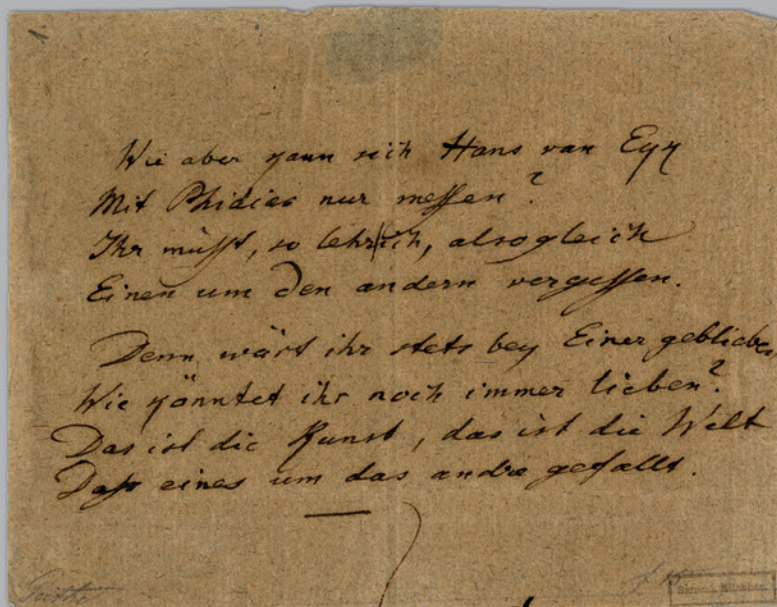 Wie aber kann sich Hans van Eyk
Mit Phidias nur messen?
Ihr müsst, so lehr ich, alsogleich
Einen um den andern vergessen.
Denn wärt ihr stets bey Einer geblieben,
Wie könntet ihr noch immer lieben?
Das ist die Kunst, das ist die Welt
Dass eines um das andre gefällt.
Goethe